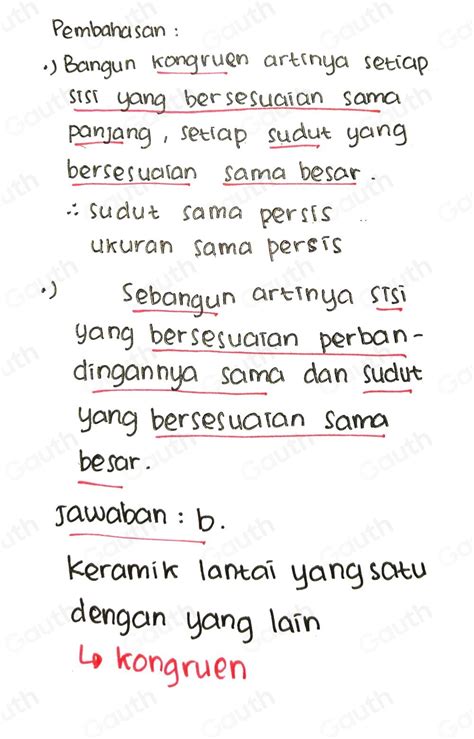 Pembahasan :
•) Bangun kongruen artinya setiap
sisi yang bersesuaian sama
panjang, setiap sudut yang
bersesuaian sama besar.
∴ sudut sama persis
ukuran sama persis
•) Sebangun artinya sisi
yang bersesuaian perban-
dingannya sama dan sudut
yang bersesuaian sama
besar.
Jawaban : b.
Keramik lantai yang satu
dengan yang lain
↳ kongruen
Gauth